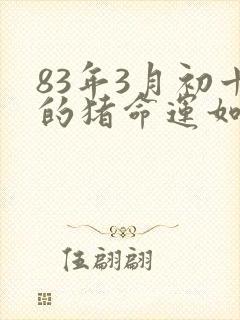 83年3月初十
的猪命运如
伍翩翩